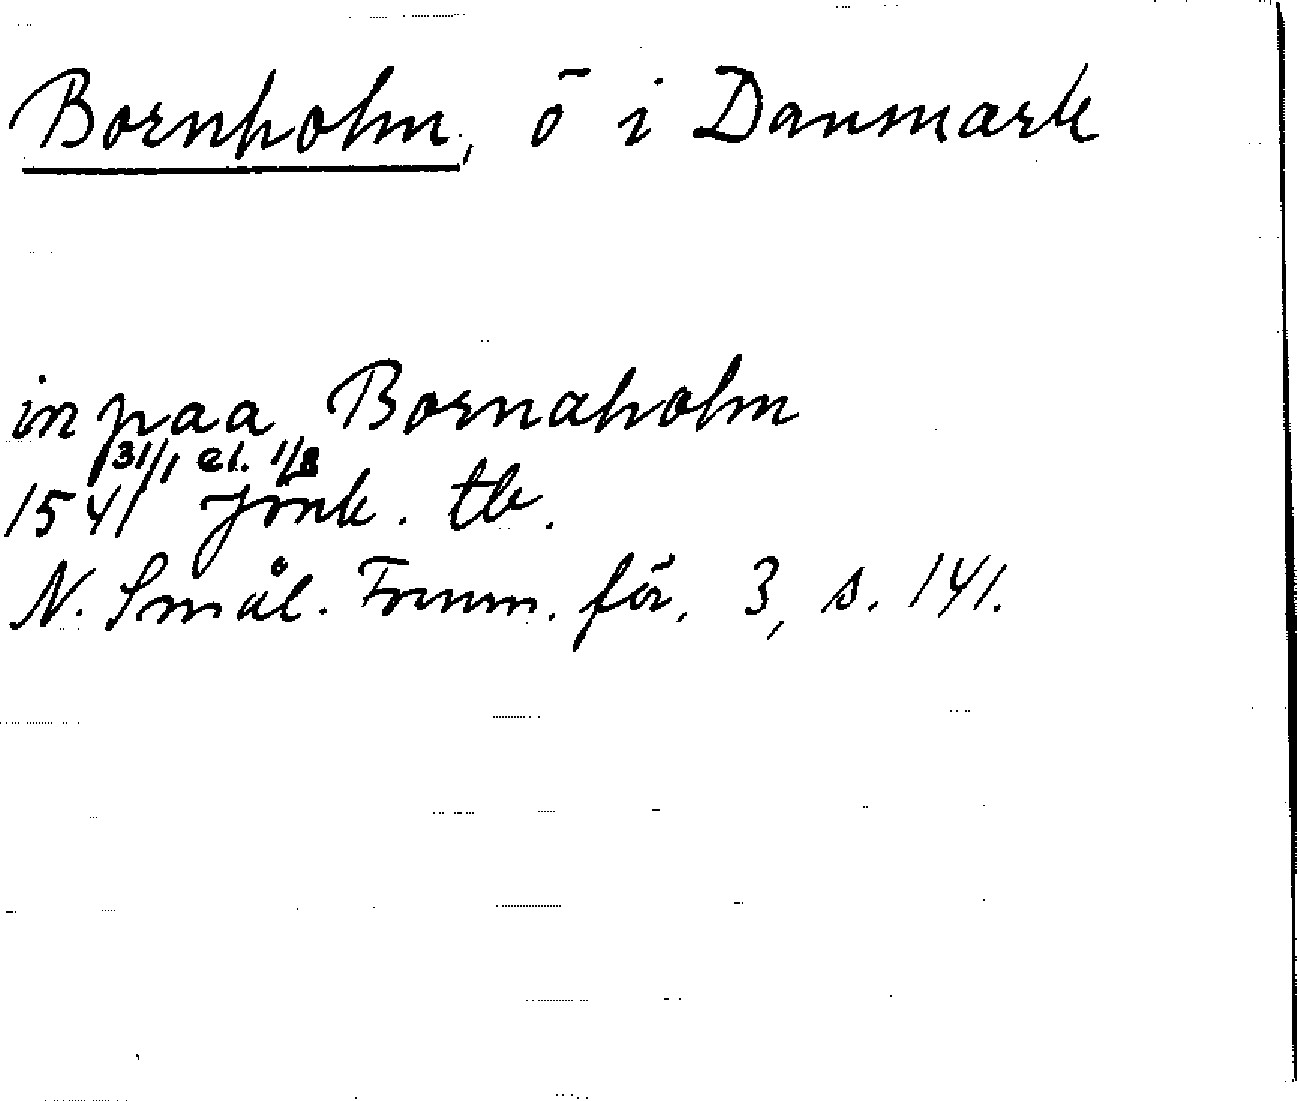 Bornholm, ö i Danmark
in paa Bornaholm
31/1 el. 1/8
1541 Jönk. tb.
N. Smål. Fornm. för. 3, s. 141.